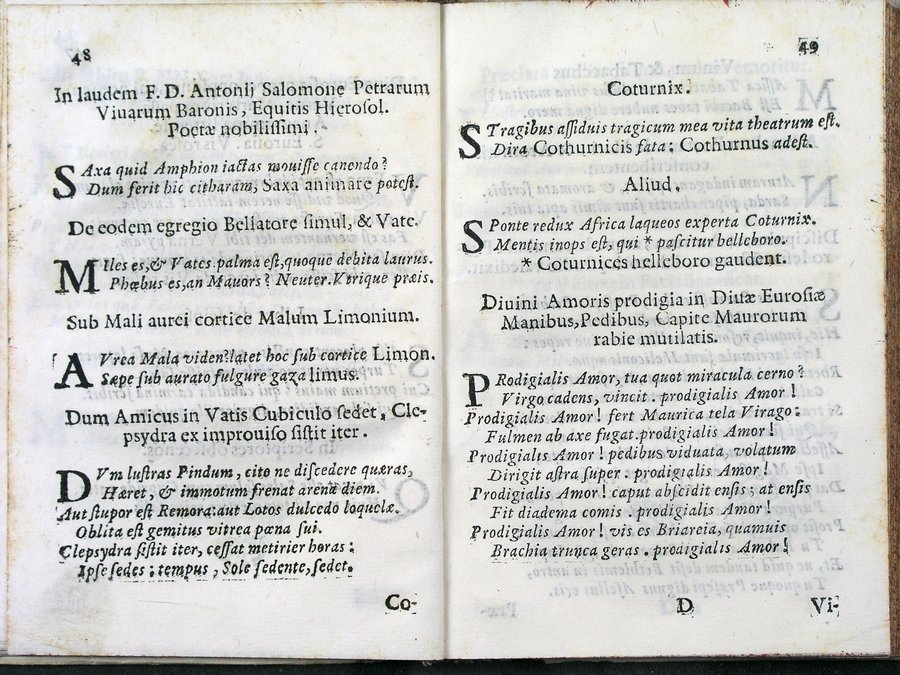 48
In laudem F. D. Antonij Salomone Petrarum
Viuarum Baronis, Equitis Hierosol.
Poetæ nobilissimi.
SAxa quid Amphion iactas mouisse canendo?
Dum ferit hic citharam, Saxa animare potest.
De eodem egregio Bellatore simul, & Vate.
MIles es, & Vates. palma est, quoque debita laurus.
Phœbus es, an Mauors? Neuter. Vtrique præis.
Sub Mali aurei cortice Malum Limonium.
AVrea Mala viden? latet hoc sub cortice Limon.
Sæpe sub aurato fulgure gaza limus.
Dum Amicus in Vatis Cubiculo sedet, Cle-
psydra ex improuiso sistit iter.
DVm lustras Pindum, cito ne discedere quæras,
Hæret, & immotum frenat arena diem.
Aut stupor est Remora: aut Lotos dulcedo loquelæ.
Oblita est gemitus vitrea pœna sui.
Clepsydra sistit iter, cessat metirier horas:
Ipse sedes: tempus, Sole sedente, sedet.
Co-
49
Coturnix.
STragibus assiduis tragicum mea vita theatrum est.
Dira Cothurnicis fata: Cothurnus adest.
Aliud.
SPonte redux Africa laqueos experta Coturnix.
Mentis inops est, qui * pascitur helleboro.
* Coturnices helleboro gaudent.
Diuini Amoris prodigia in Diuæ Eurosiæ
Manibus, Pedibus, Capite Maurorum
rabie mutilatis.
PRodigialis Amor, tua quot miracula cerno?
Virgo cadens, vincit. prodigialis Amor!
Prodigialis Amor! fert Maurica tela Virago:
Fulmen ab axe fugat. prodigialis Amor!
Prodigialis Amor! pedibus viduata, volatum
Dirigit astra super. prodigialis Amor!
Prodigialis Amor! caput abscidit ensis; at ensis
Fit diadema comis. prodigialis Amor!
Prodigialis Amor! vis es Briareia, quamuis
Brachia trunca geras. prodigialis Amor!
D
Vi-